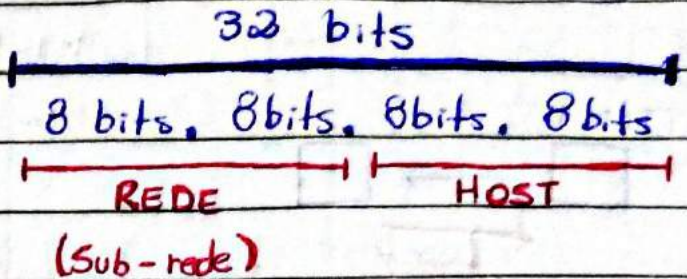 32 bits
8 bits. 8bits. 8bits. 8bits
REDE HOST
(Sub-rede)